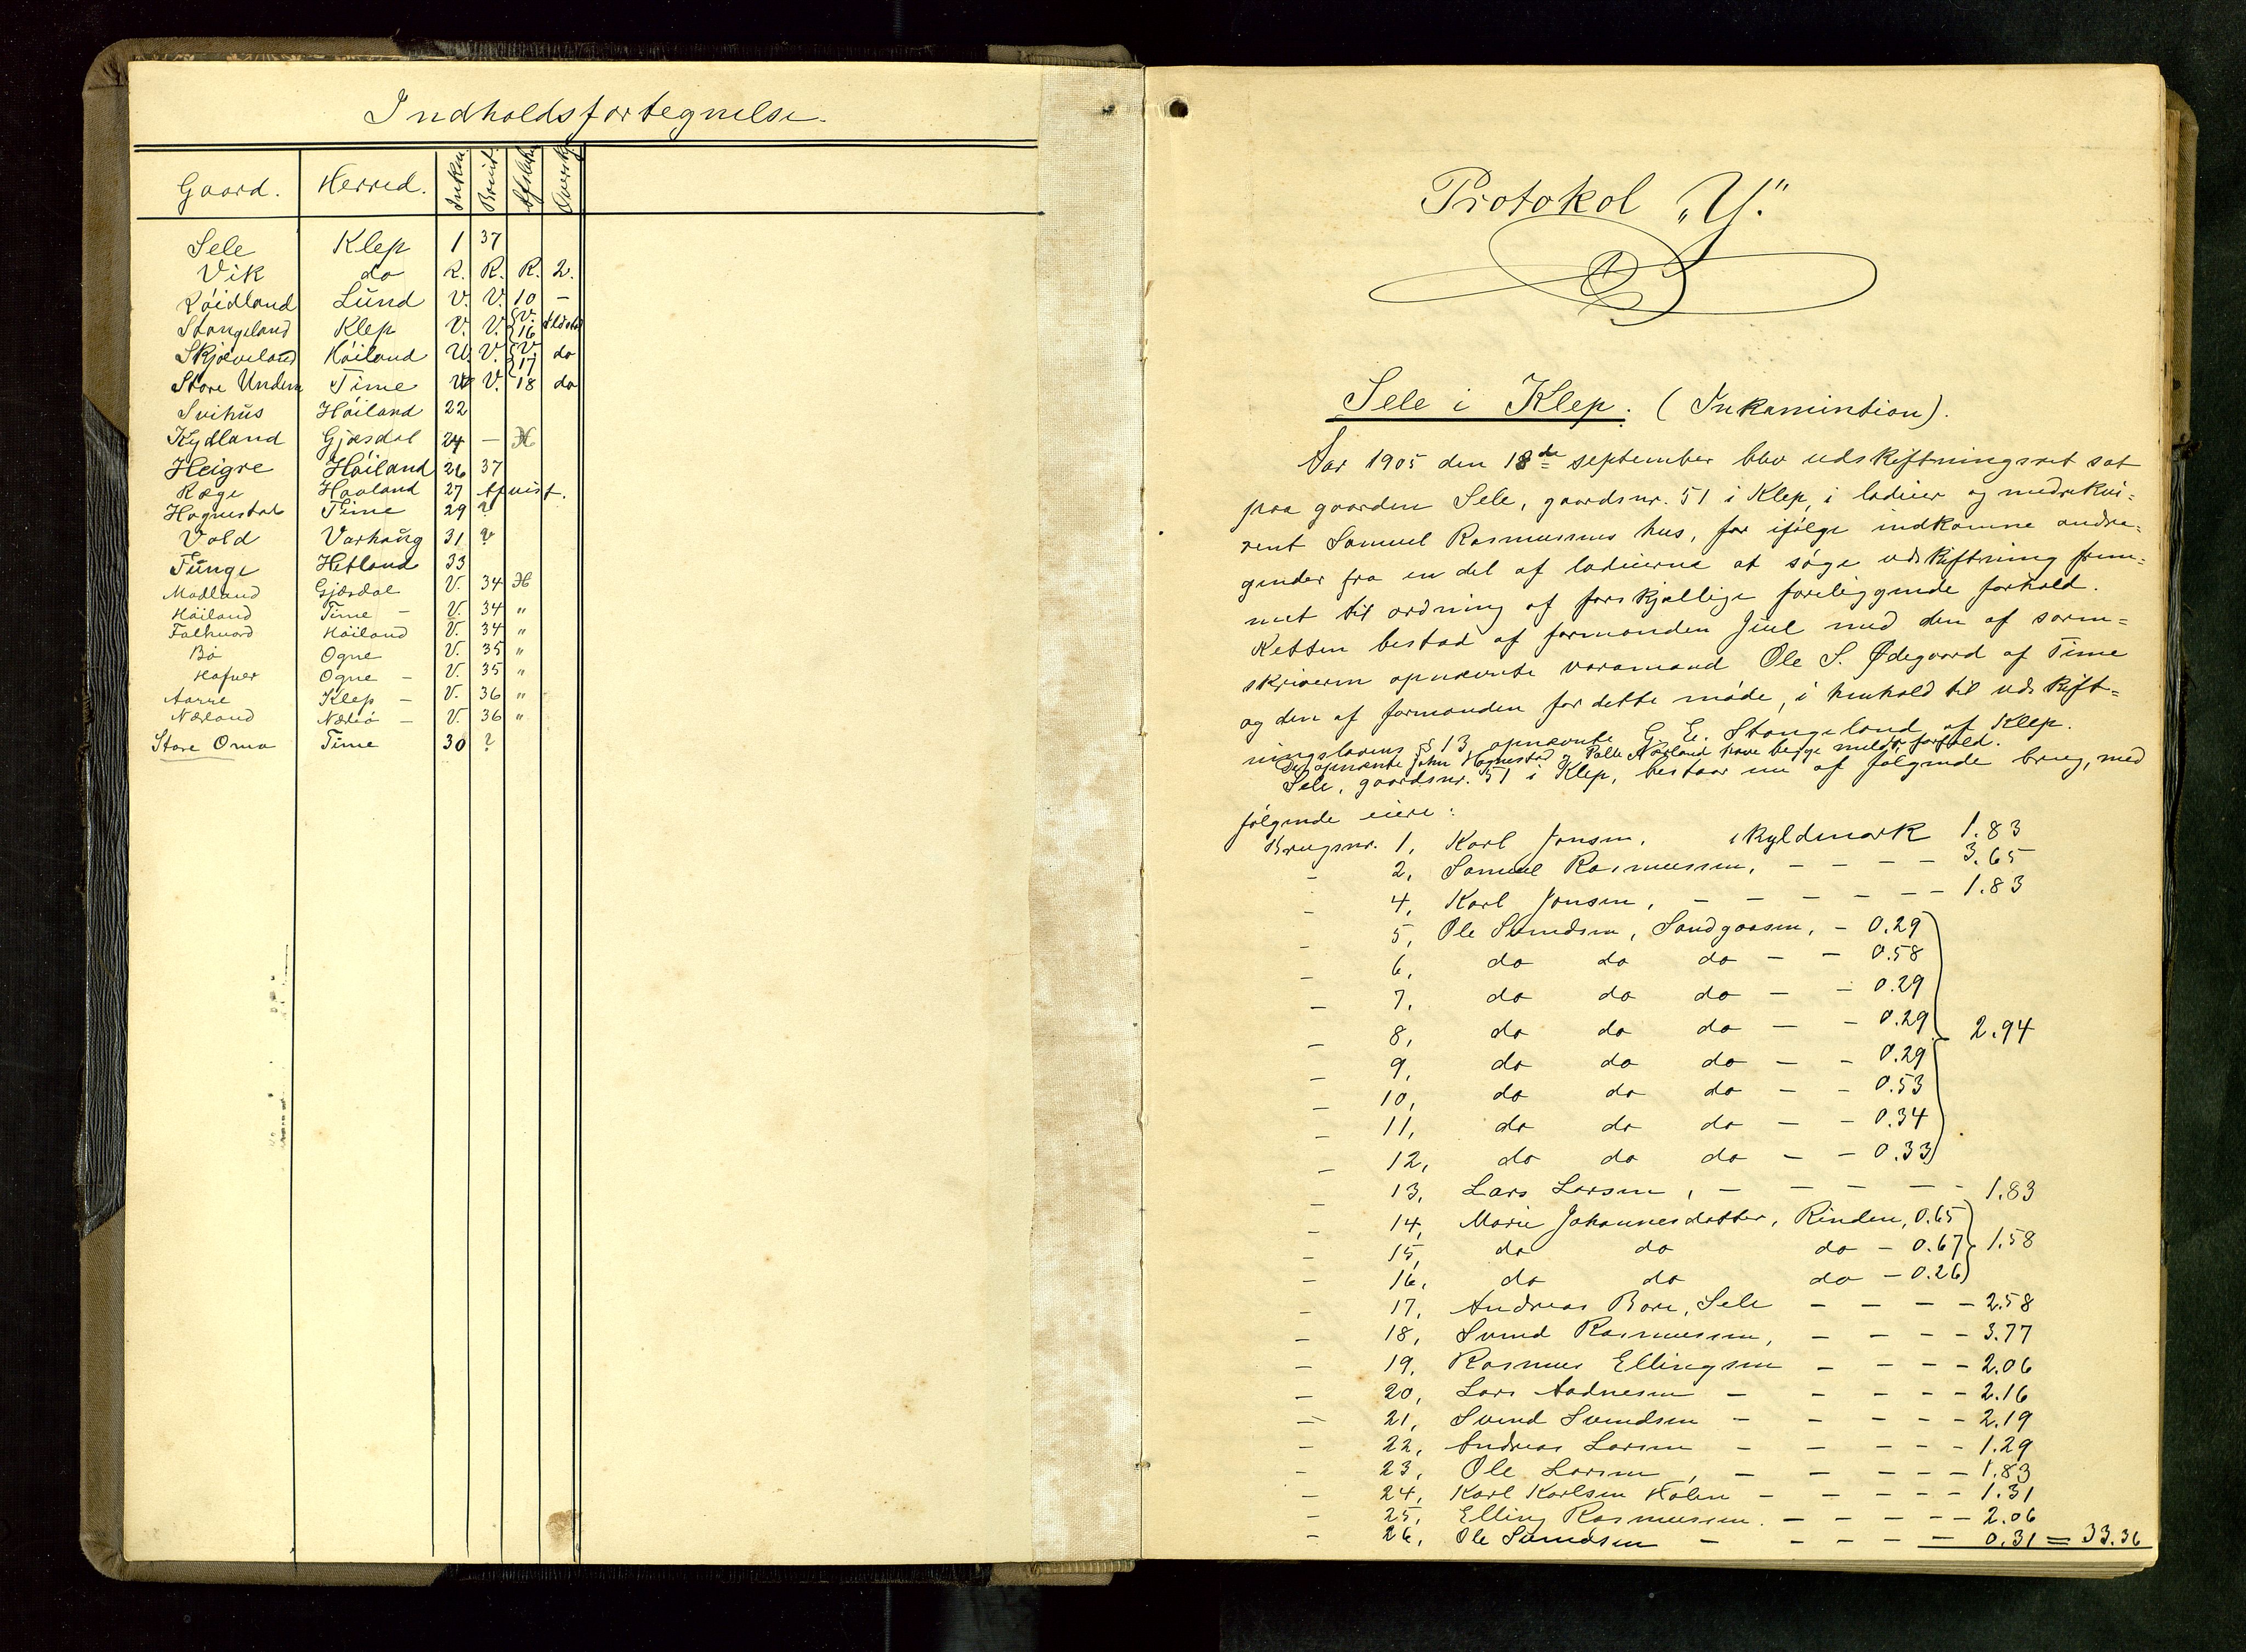 Indholdsfortegnelse.
Gaard. Herred. Inkm. Afslutn.
Sele Klep 1 37
Vik do R. R. R. 2.
Röidland Lund V. V. 10 -
Stangeland Klep V. V. V. 16
Skjæveland Höiland V. V. V. 17 do
Store Undem Time V. V. 18 do
Svihus Höiland 22
Kydland Gjæsdal 24 -
Heigre Höiland 26 37
Ræge Haaland 27 Afvist.
Hognestad Time 29 ?
Vold Varhaug 31 ?
Tunge Hetland 33
Madland Gjæsdal V. 34
Höiland Time - V. 34 "
Folkvord Höiland V. 34 "
Bö Ogne V. 35 "
Hafver Ogne - V. 35 "
Aarre Klep - V. 36 "
Nærland Nærbö - V. 36 "
Store Oma Time 30 ?
Protokol „Y."
Sele i Klep. (Inkamintion).
Aar 1905 den 18de september blev udskiftningsret sat
paa gaarden Sele, gaardsnr. 51 i Klep, i lodeier og medrekvi=
rent Samuel Rasmussens hus, for ifölge indkomne andra=
gender fra en del af lodeierne at söge udskiftning frem=
met til ordning af forskjellige foreliggende forhold.
Retten bestod af formanden Juul med den af sorn=
skriveren opnævnte varamand Ole S. Ødegaard af Time
og den af formanden for dette möde, i henhold til udskift=
ningslovens § 13, opnævnte G. E. Stangeland af Klep.
De opnævnte John Hognestad og Palle Nærland have begge meldt forfald.
Sele, gaardsnr. 51 i Klep, bestaar nu af fölgende brug, med
fölgende eiere:
Brugsnr. 1, Karl Jonsen, skyldmark 1.83
- 2, Samuel Rasmussen, - - - - 3.65
- 4, Karl Jonsen, - - - - - - 1.83
- 5, Ole Svendsen, Sandgaasen, - 0.29
- 6, do do do - - 0.58
- 7, do do do - - 0.29
- 8, do do do - - 0.29 2.94
- 9, do do do - - 0.29
- 10, do do do - - 0.53
- 11, do do do - - 0.34
- 12, do do do - - 0.33
- 13, Lars Larsen, - - - - - - 1.83
- 14, Marie Johannesdatter, Rinden, 0.65
- 15, do do do - 0.67 1.58
- 16, do do do - 0.26
- 17, Andreas Bore, Sele - - - - 2.58
- 18, Svend Rasmussen, - - - - 3.77
- 19, Rasmus Ellingsen - - - - 2.06
- 20, Lars Aadnesen - - - - - 2.16
- 21, Svend Svendsen - - - - - 2.19
- 22, Andreas Larsen - - - - - 1.29
- 23, Ole Larsen, - - - - - 1.83
- 24, Karl Karlsen Holen - - - - - 1.31
- 25, Elling Rasmussen. - - - - - 2.06
- 26, Ole Svendsen - - - - - 0.31 = 33.36